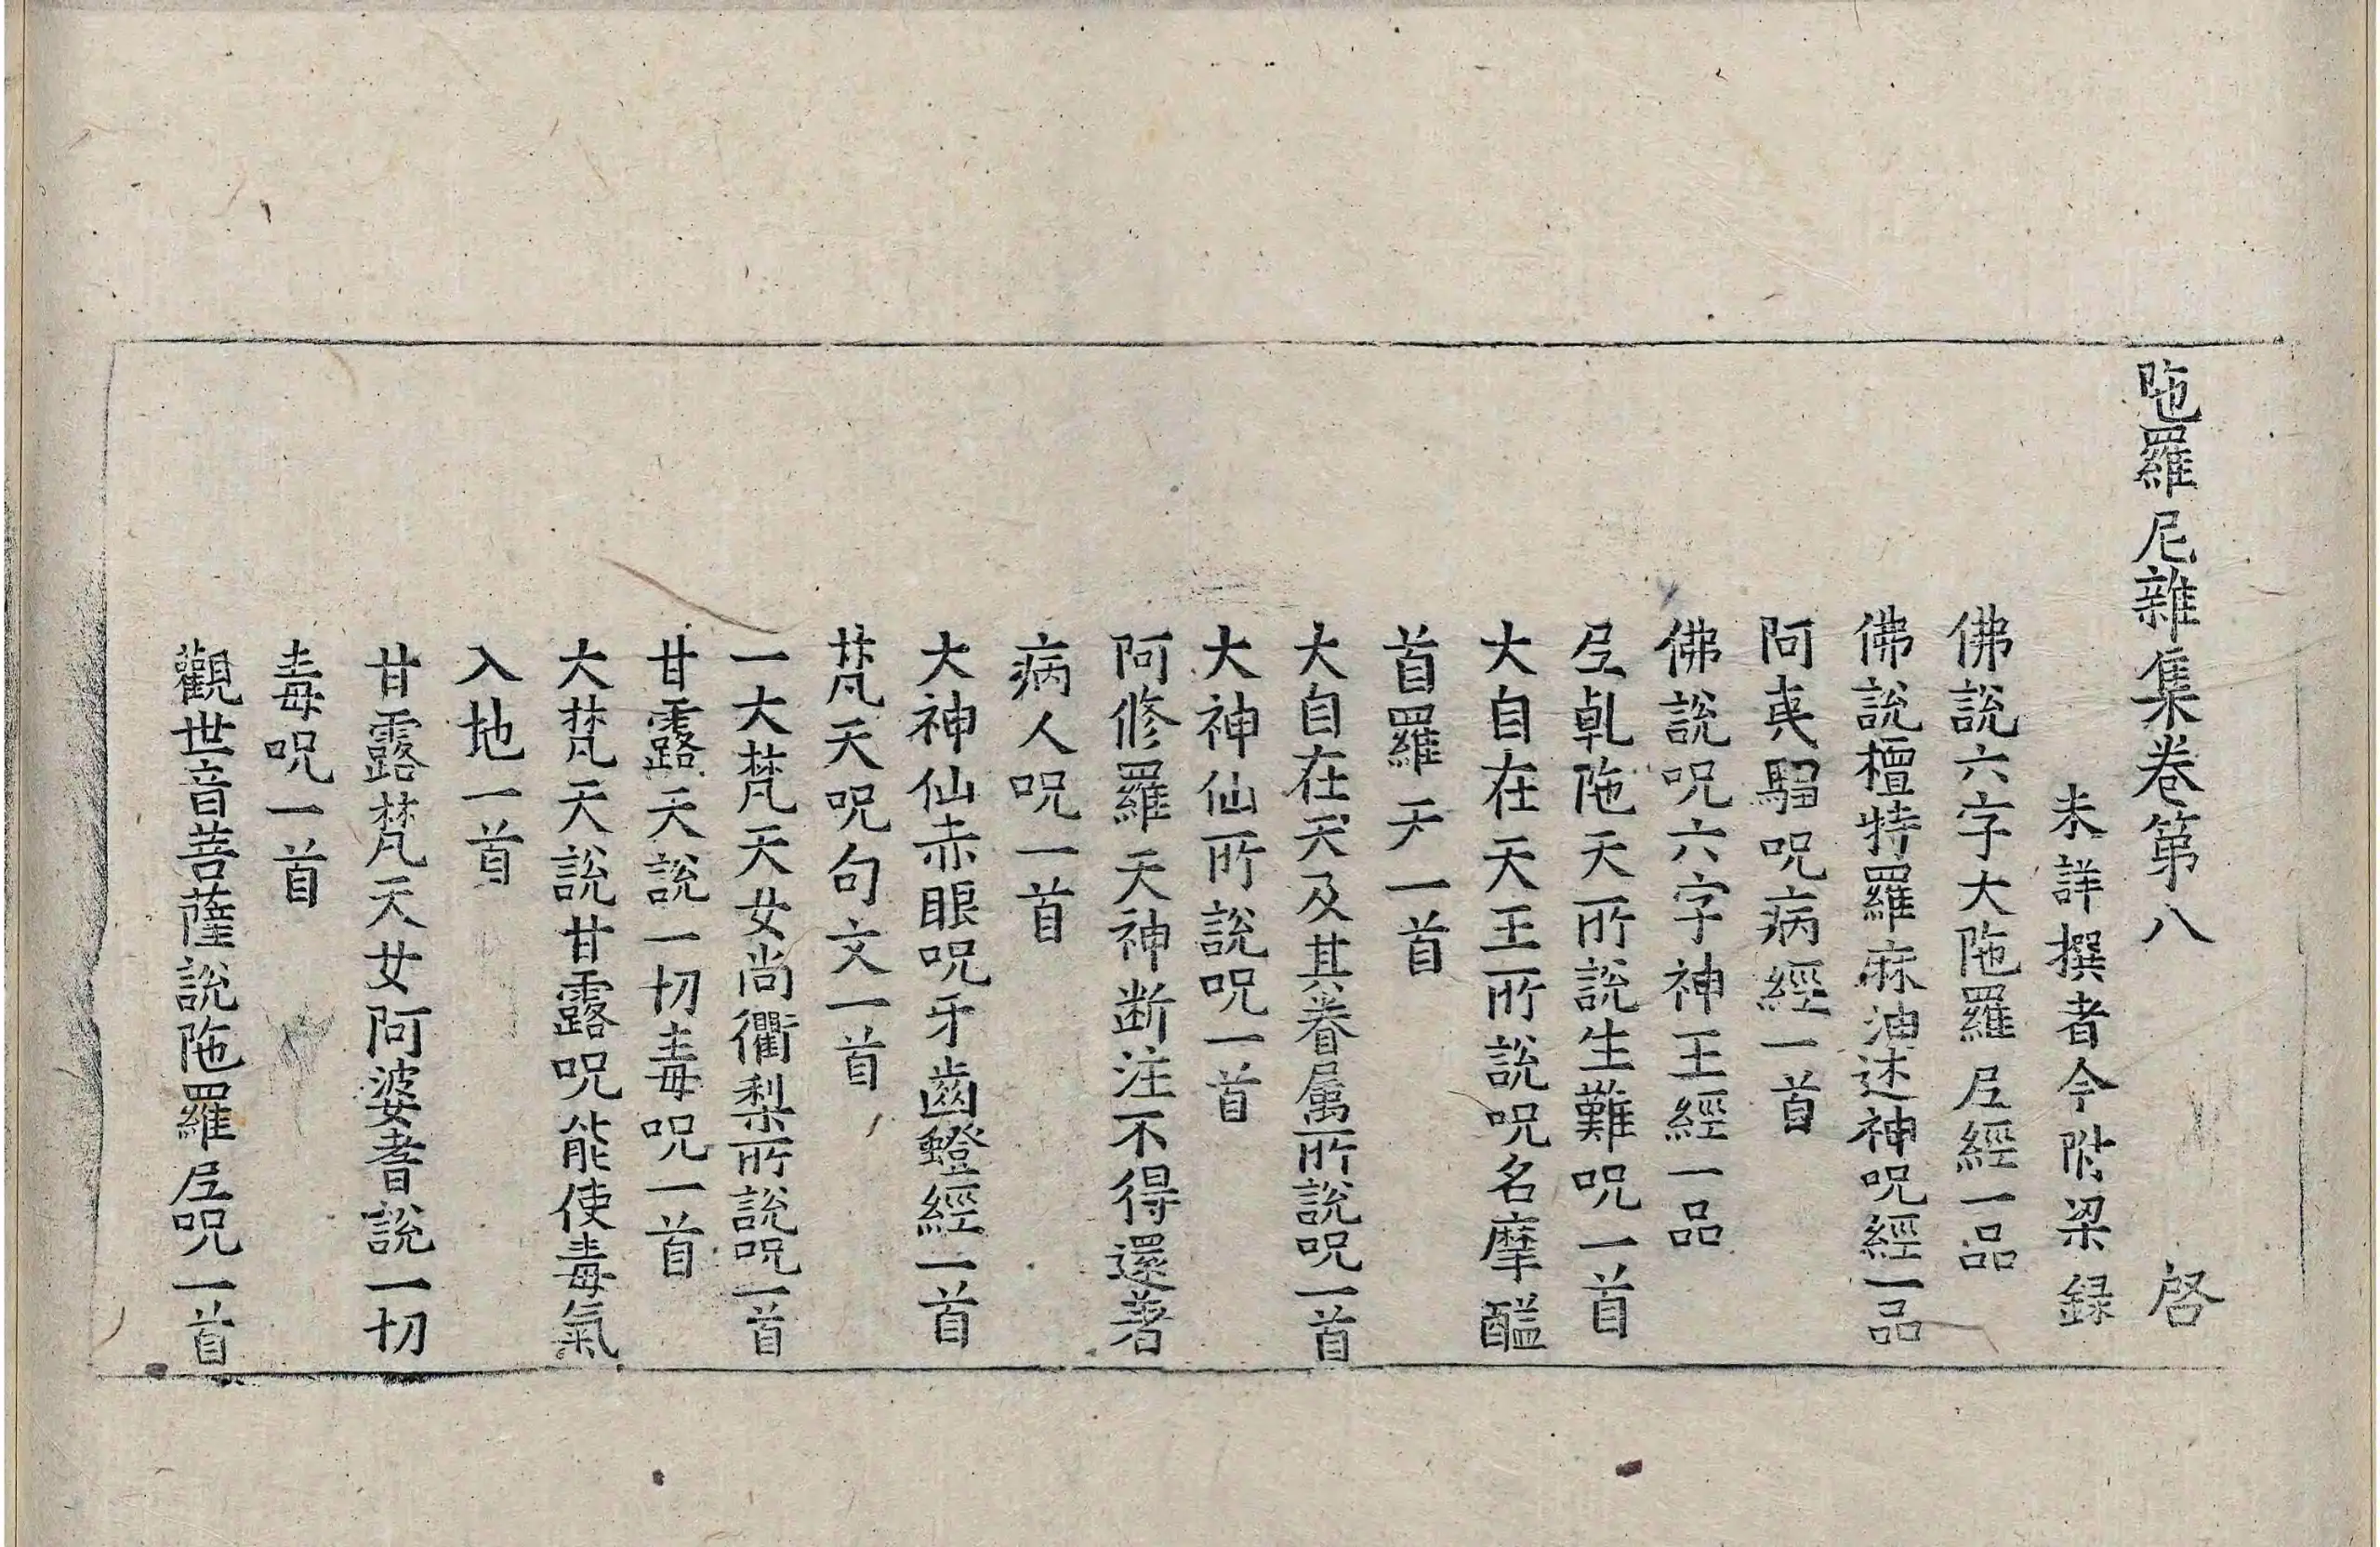 陁羅尼雜集卷第八 啓
未詳撰者今附梁録
佛說六字大陁羅𡰱經一品
佛說檀特羅麻油述神呪經一品
阿夷騶呪病經一首
佛說呪六字神王經一品
𡰱乹陁天所說生難呪一首
大自在天王所說呪名摩醯
首羅天一首
大自在天及其眷属所說呪一首
大神仙所說呪一首
阿修羅天神断注不得還著
病人呪一首
大神仙赤眼呪牙齒蛩經一首
梵天呪句文一首
一大梵天女尚衢梨所說呪一首
甘露天說一切毒呪一首
大梵天說甘露呪能使毒氣
入地一首
甘露梵天女阿婆耆說一切
毒呪一首
觀世音菩薩說陁羅𡰱呪一首